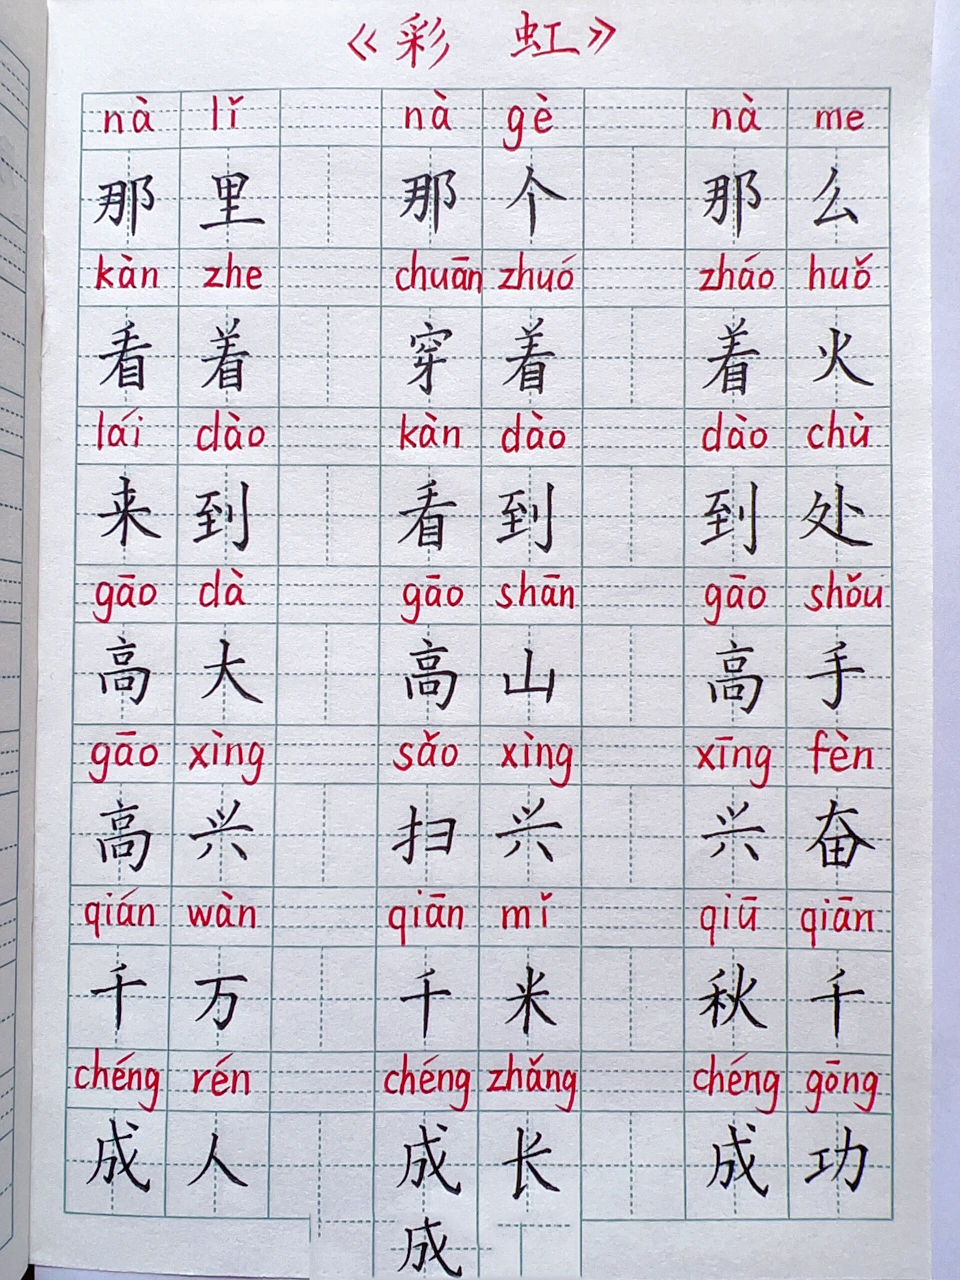 《彩 虹》
nà lǐ nà gè nà me
那里 那个 那么
kàn zhe chuān zhuó zháo huǒ
看着 穿着 着火
lái dào kàn dào dào chù
来到 看到 到处
gāo dà gāo shān gāo shǒu
高大 高山 高手
gāo xìng sǎo xìng xīng fèn
高兴 扫兴 兴奋
qián wàn qiān mǐ qiū qiān
千万 千米 秋千
chéng rén chéng zhǎng chéng gōng
成人 成长 成功
成